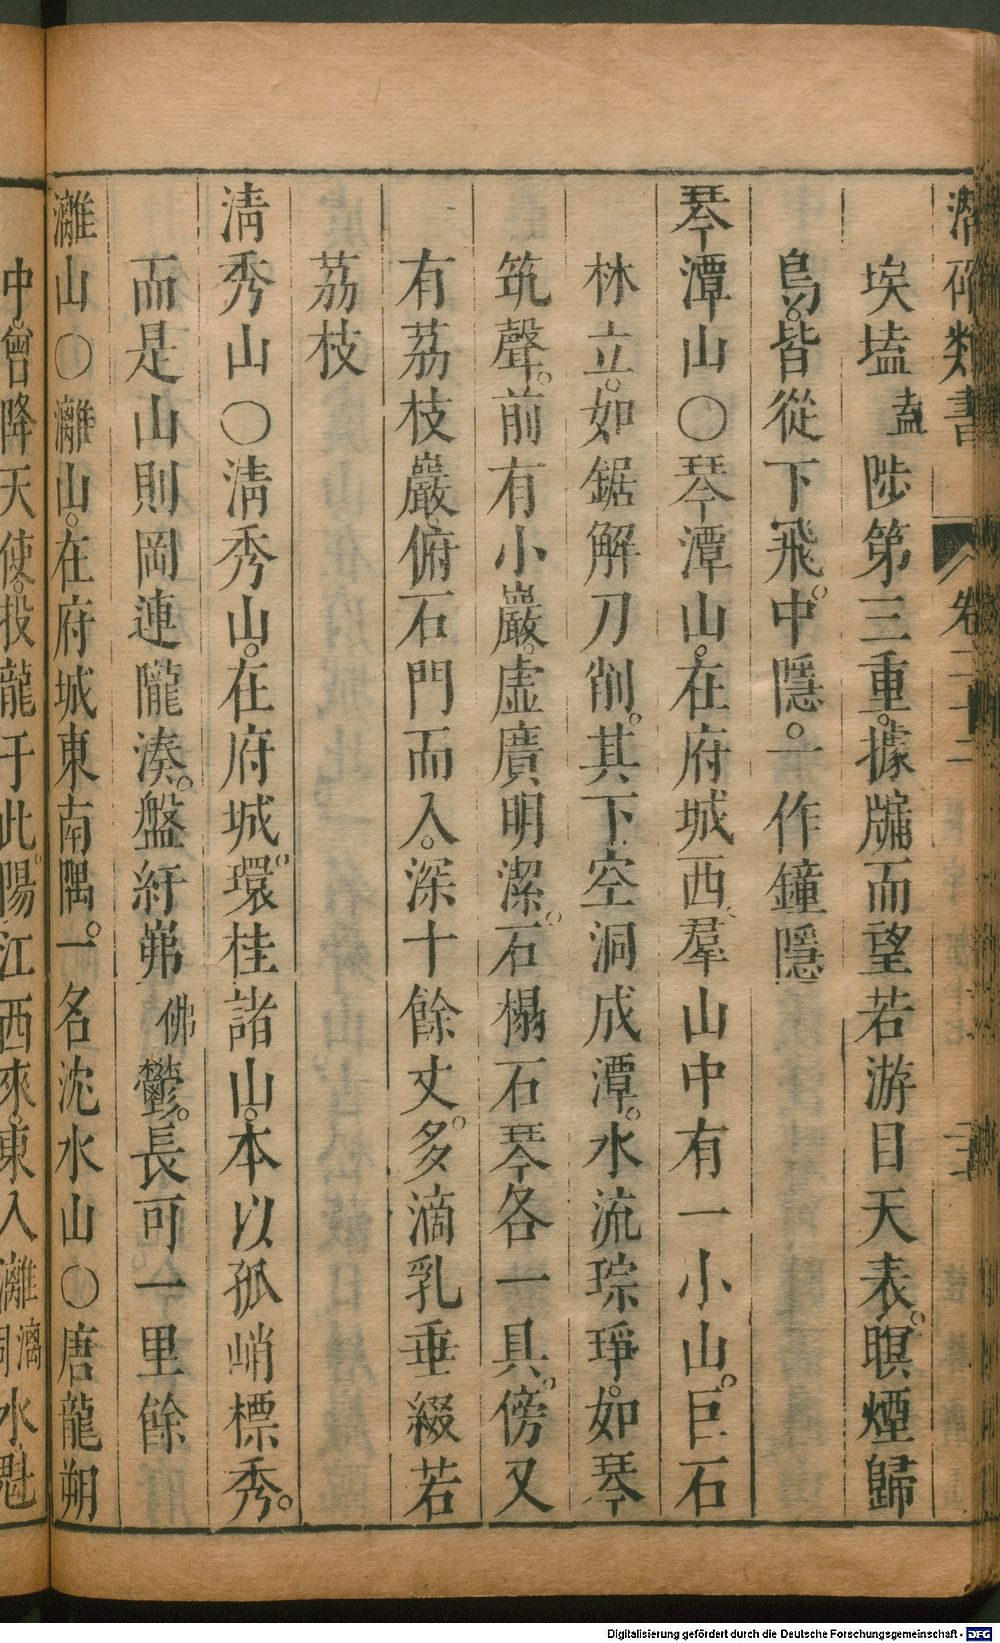 潛確類書 卷二十二
埃壒盍陟第三重。據牖而望若游目天表。暝煙歸
鳥。皆從下飛。中隱。一作鐘隱
琴潭山○琴潭山。在府城西。羣山中有一小山。巨石
林立。如鋸解刀削。其下空洞成潭。水流琮琤。如琴
筑聲。前有小巖。虛廣明潔。石榻石琴各一具。傍又
有荔枝巖。俯石門而入。深十餘丈。多滴乳垂綴若
荔枝
清秀山○清秀山。在府城。環桂諸山。本以孤峭標秀。
而是山則岡連隴湊。盤紆岪佛鬱。長可一里餘
灕山○灕山。在府城東南隅。一名沈水山○唐龍朔
中。曾降天使。投龍于此。陽江西來。東入灕漓同水。
Digitalisierung gefördert durch die Deutsche Forschungsgemeinschaft - DFG